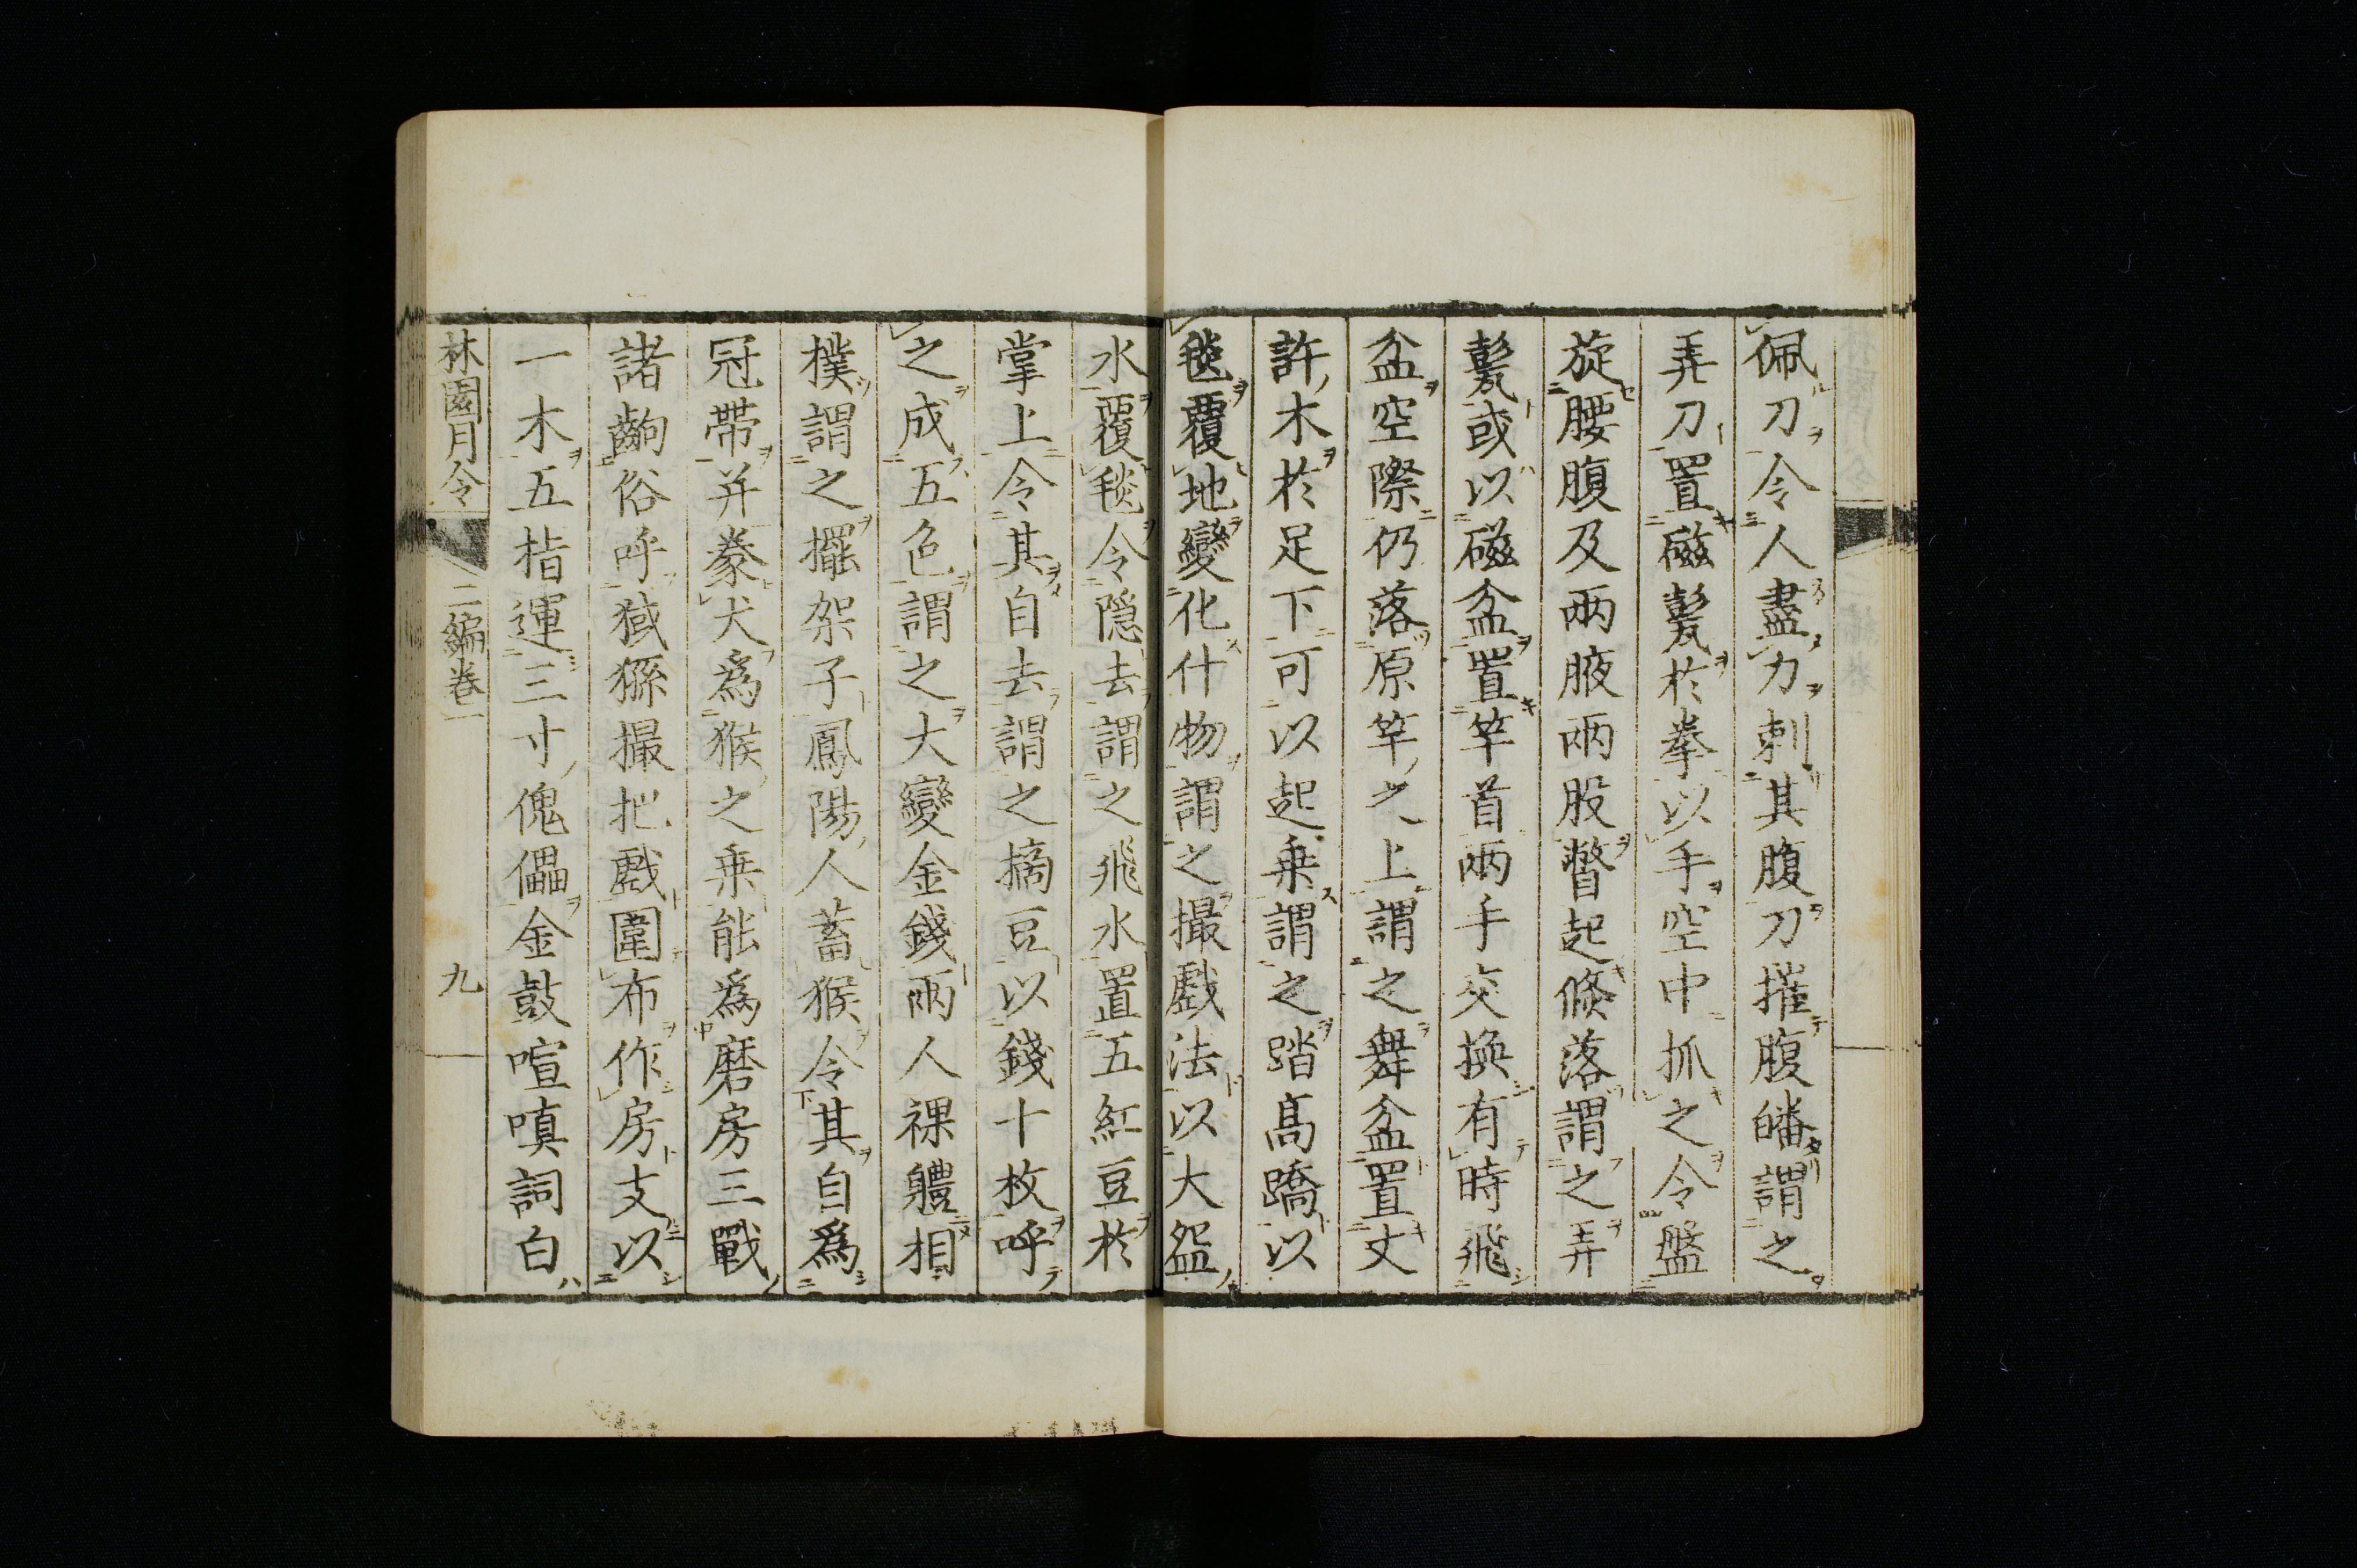 佩刀令人盡力刺其腹刀摧腹皤謂之
弄刀置磁甏於拳以手空中抓之令盤
旋腰腹及兩腋兩股瞥起倐落謂之弄
甏或以磁盆置竿首兩手交換有時飛
盆空際仍落原竿之上謂之舞盆置丈
許木於足下可以起乗謂之踏高蹻以
毯覆地變化什物謂之撮戲法以大盌
水覆毯令隠去謂之飛水置五紅豆於
掌上令其自去謂之摘豆以錢十枚呼
之成五色謂之大變金錢兩人祼軆相
撲謂之擺架子鳳陽人蓄猴令其自爲
冠帶并豢犬爲猴之乗能爲磨房三戰
諸齣俗呼猢猻撮把戲圍布作房支以
一木五指運三寸傀儡金鼓喧嗔詞白
林園月令
二編卷一
九